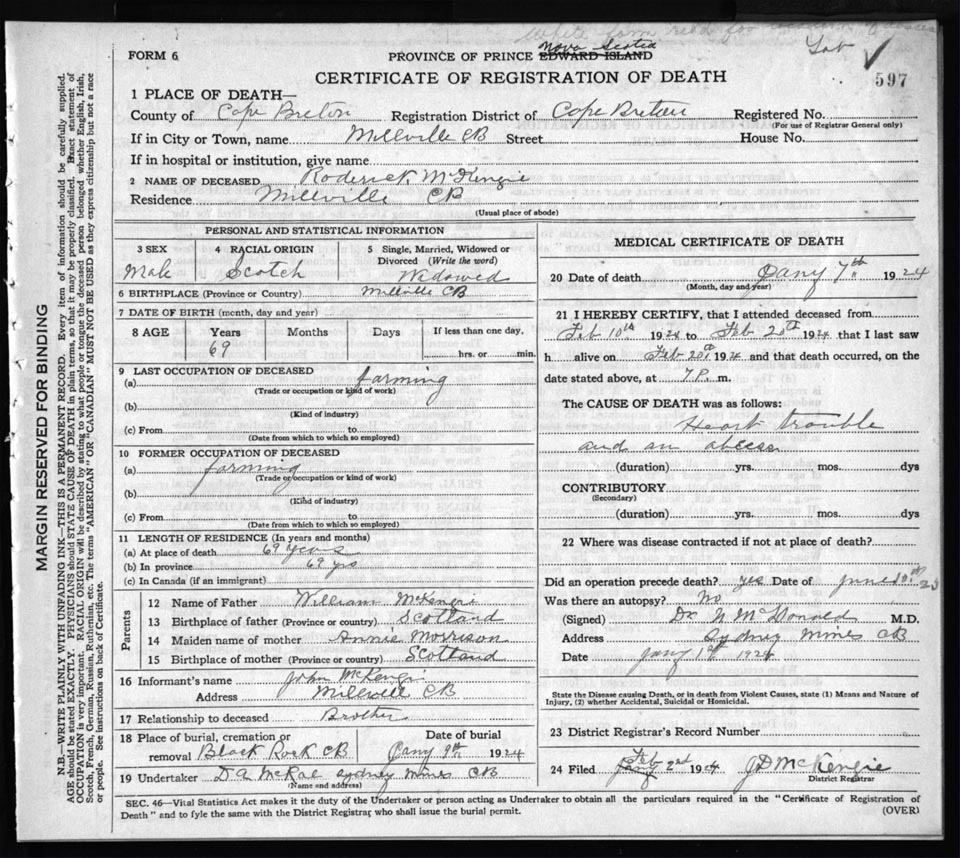 white form rec'd for
Lab ✓
FORM 6
PROVINCE OF PRINCE EDWARD ISLAND Nova Scotia
597
CERTIFICATE OF REGISTRATION OF DEATH
1 PLACE OF DEATH—
County of Cape Breton Registration District of Cape Breton Registered No.
(For use of Registrar General only)
If in City or Town, name Millville CB Street House No.
If in hospital or institution, give name
2 NAME OF DECEASED Roderick McKenzie
Residence Millville CB
(Usual place of abode)
PERSONAL AND STATISTICAL INFORMATION
3 SEX 4 RACIAL ORIGIN 5 Single, Married, Widowed or Divorced (Write the word)
Male Scotch Widowed
6 BIRTHPLACE (Province or Country) Millville CB
7 DATE OF BIRTH (month, day and year)
8 AGE Years Months Days If less than one day,
69 hrs. or min.
9 LAST OCCUPATION OF DECEASED
(a) farming
(Trade or occupation or kind of work)
(b)
(Kind of industry)
(c) From to
(Date from which to which so employed)
10 FORMER OCCUPATION OF DECEASED
(a) farming
(Trade or occupation or kind of work)
(b)
(Kind of industry)
(c) From to
(Date from which to which so employed)
11 LENGTH OF RESIDENCE (In years and months)
(a) At place of death 69 years
(b) In province 69 yrs
(c) In Canada (if an immigrant)
Parents
12 Name of Father William McKenzie
13 Birthplace of father (Province or country) Scotland
14 Maiden name of mother Annie Morrison
15 Birthplace of mother (Province or country) Scotland
16 Informant's name John McKenzie
Address Millville CB
17 Relationship to deceased Brother
18 Place of burial, cremation or removal Black Rock CB Date of burial Jany 9th 1924
19 Undertaker D A McRae Sydney Mines CB
(Name and address)
MEDICAL CERTIFICATE OF DEATH
20 Date of death Jany 7th 1924
(Month, day and year)
21 I HEREBY CERTIFY, that I attended deceased from
Feb 10th 1924 to Feb 20th 1924 that I last saw
h alive on Feb 20th 1924 and that death occurred, on the
date stated above, at 7 P. m.
The CAUSE OF DEATH was as follows:
Heart trouble
and an abcess
(duration) yrs. mos. dys
CONTRIBUTORY
(Secondary)
(duration) yrs. mos. dys.
22 Where was disease contracted if not at place of death?
Did an operation precede death? yes Date of June 23
Was there an autopsy? No
(Signed) Dr N McDonald M.D.
Address Sydney Mines CB
Date Jany 1st 1924
State the Disease causing Death, or in death from Violent Causes, state (1) Means and Nature of
Injury, (2) whether Accidental, Suicidal or Homicidal.
23 District Registrar's Record Number
24 Filed Jany Feb 2nd 1924 JD McKenzie
District Registrar
SEC. 46—Vital Statistics Act makes it the duty of the Undertaker or person acting as Undertaker to obtain all the particulars required in the "Certificate of Registration of
Death" and to fyle the same with the District Registrar who shall issue the burial permit. (OVER)
MARGIN RESERVED FOR BINDING
N.B.—WRITE PLAINLY WITH UNFADING INK—THIS IS A PERMANENT RECORD. Every item of information should be carefully supplied.
AGE should be stated EXACTLY. PHYSICIANS should STATE CAUSE OF DEATH in plain terms, so that it may be properly classified. Exact statement of
OCCUPATION is very important. RACIAL ORIGIN will be described by stating to what people or tongue the deceased person belonged whether English, Irish,
Scotch, French, German, Russian, Ruthenian, etc. The terms "AMERICAN" OR "CANADIAN" MUST NOT BE USED as they express citizenship but not a race
or people. See instructions on back of Certificate.